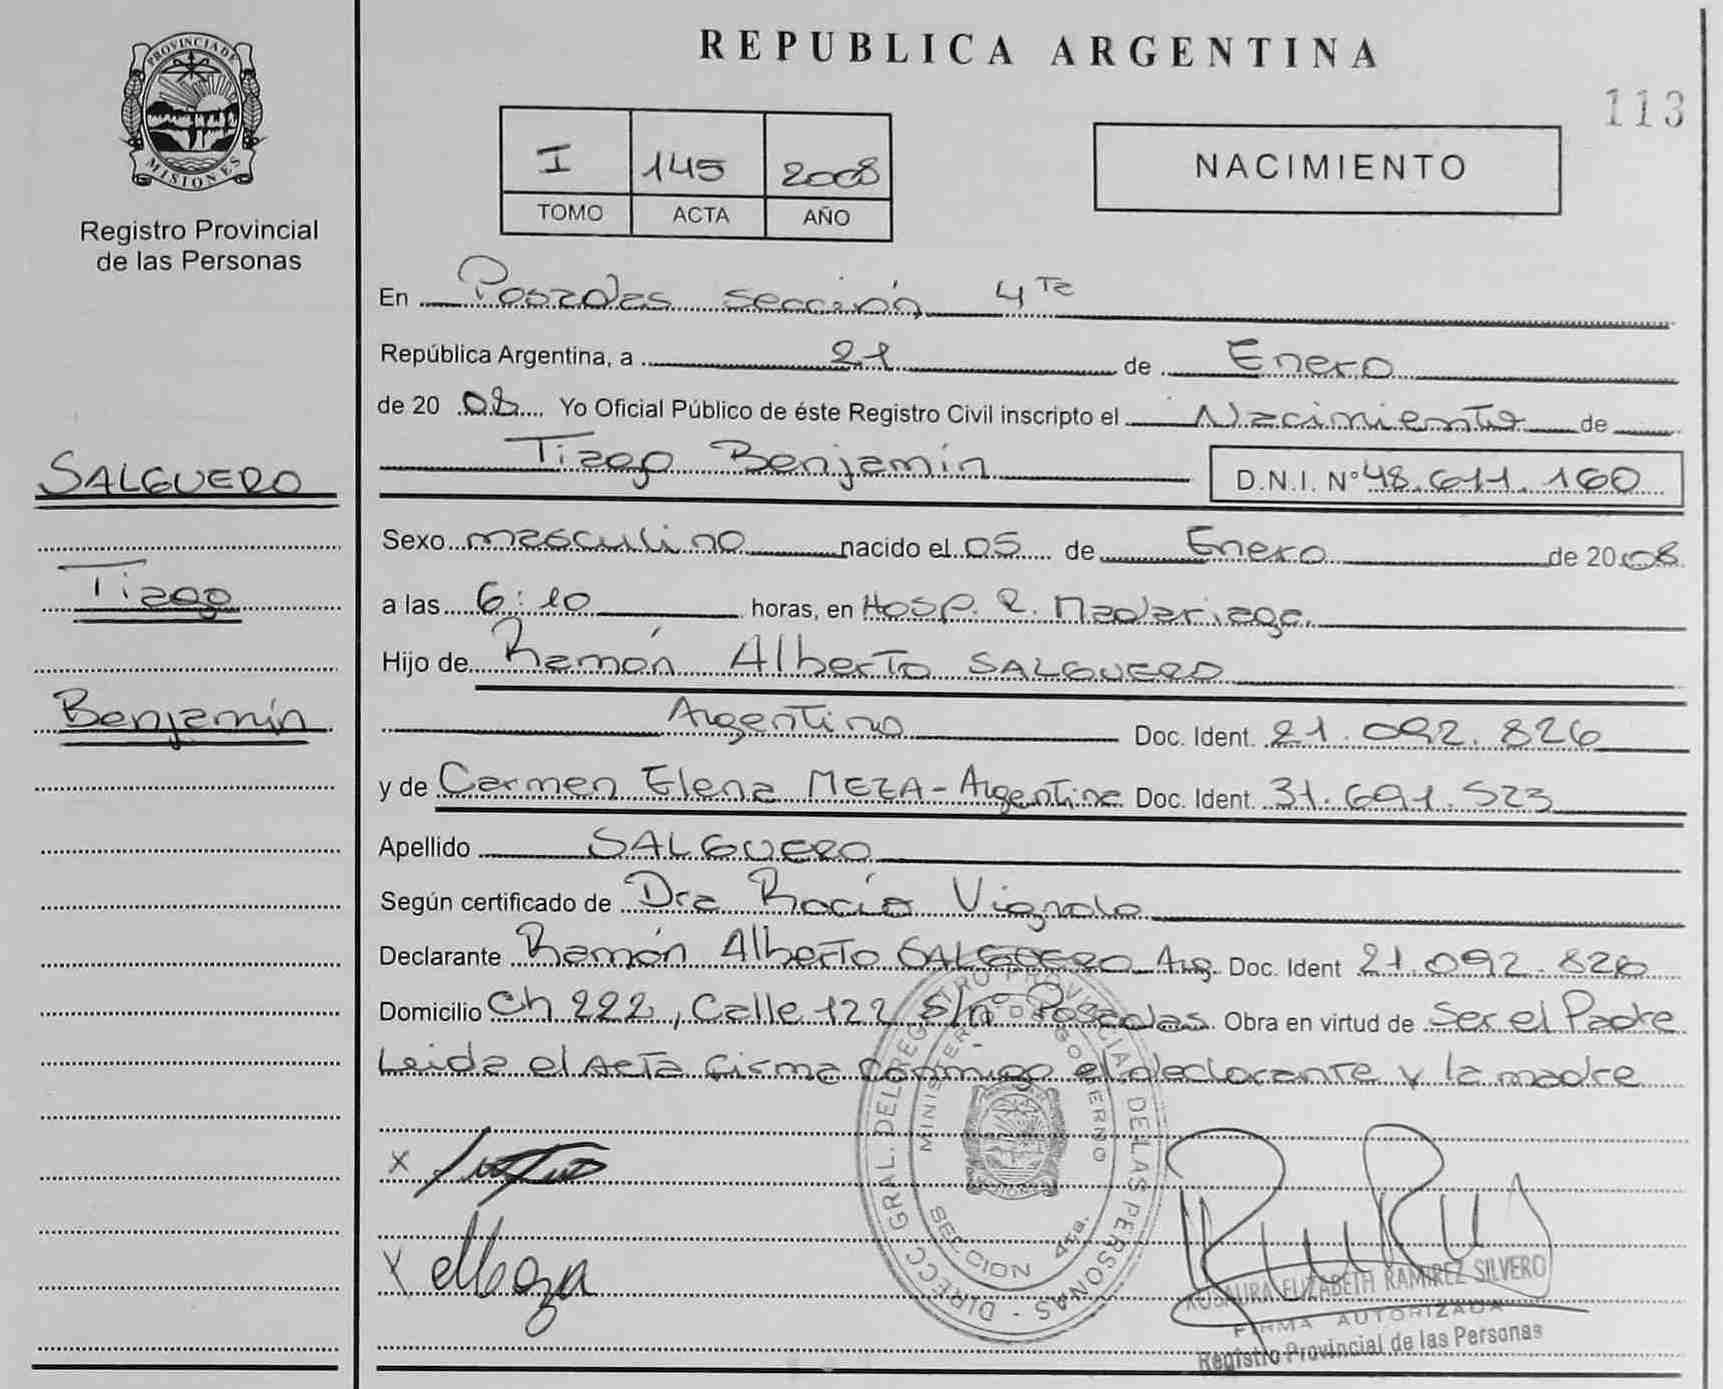 PROVINCIA DE
MISIONES
Registro Provincial
de las Personas
SALGUERO
Tiago
Benjamín
REPUBLICA ARGENTINA
113
I 145 2008
TOMO ACTA AÑO
NACIMIENTO
En Posadas sección 4ta
República Argentina, a 21 de Enero
de 2008 Yo Oficial Público de éste Registro Civil inscripto el Nacimiento de
Tiago Benjamín D.N.I. N° 48.611.160
Sexo masculino nacido el 05 de Enero de 2008
a las 6:10 horas, en Hosp. R. Madariaga.
Hijo de Ramón Alberto SALGUERO
Argentino Doc. Ident. 21.092.826
y de Carmen Elena MEZA - Argentina Doc. Ident. 31.691.523
Apellido SALGUERO
Según certificado de Dra Rocío Vignolo
Declarante Ramón Alberto SALGUERO Arg. Doc. Ident 21.092.826
Domicilio Ch 222, Calle 122 s/nº Posadas. Obra en virtud de Ser el Padre
Leida el Acta firma conmigo el declarante y la madre
DIRECC. GRAL. DEL REGISTRO PROVINCIAL DE LAS PERSONAS
MINISTERIO DE GOBIERNO
SECCION 4ta.
x
x eMeza
ROSAURA ELIZABETH RAMIREZ SILVERO
FIRMA AUTORIZADA
Registro Provincial de las Personas